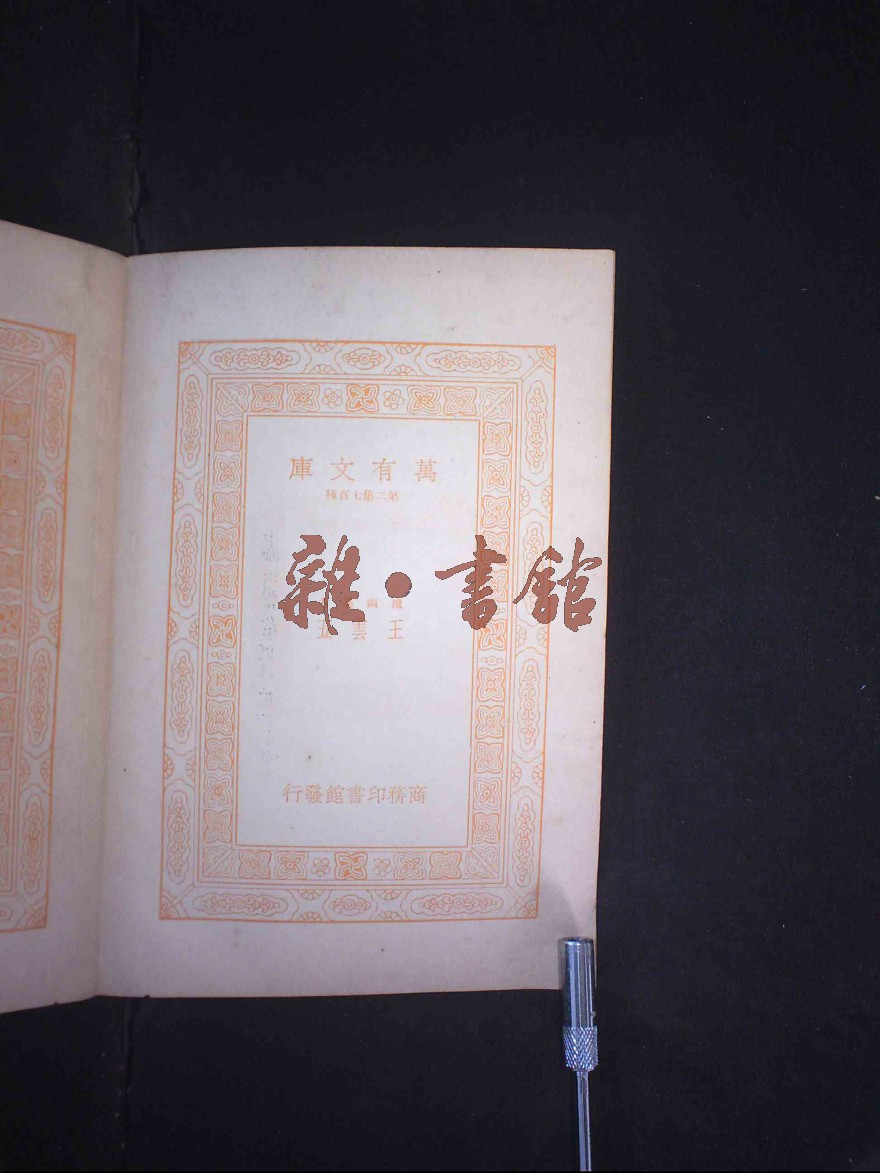 萬有文庫
第二集七百種
雜·書館
王雲五
商務印書館發行